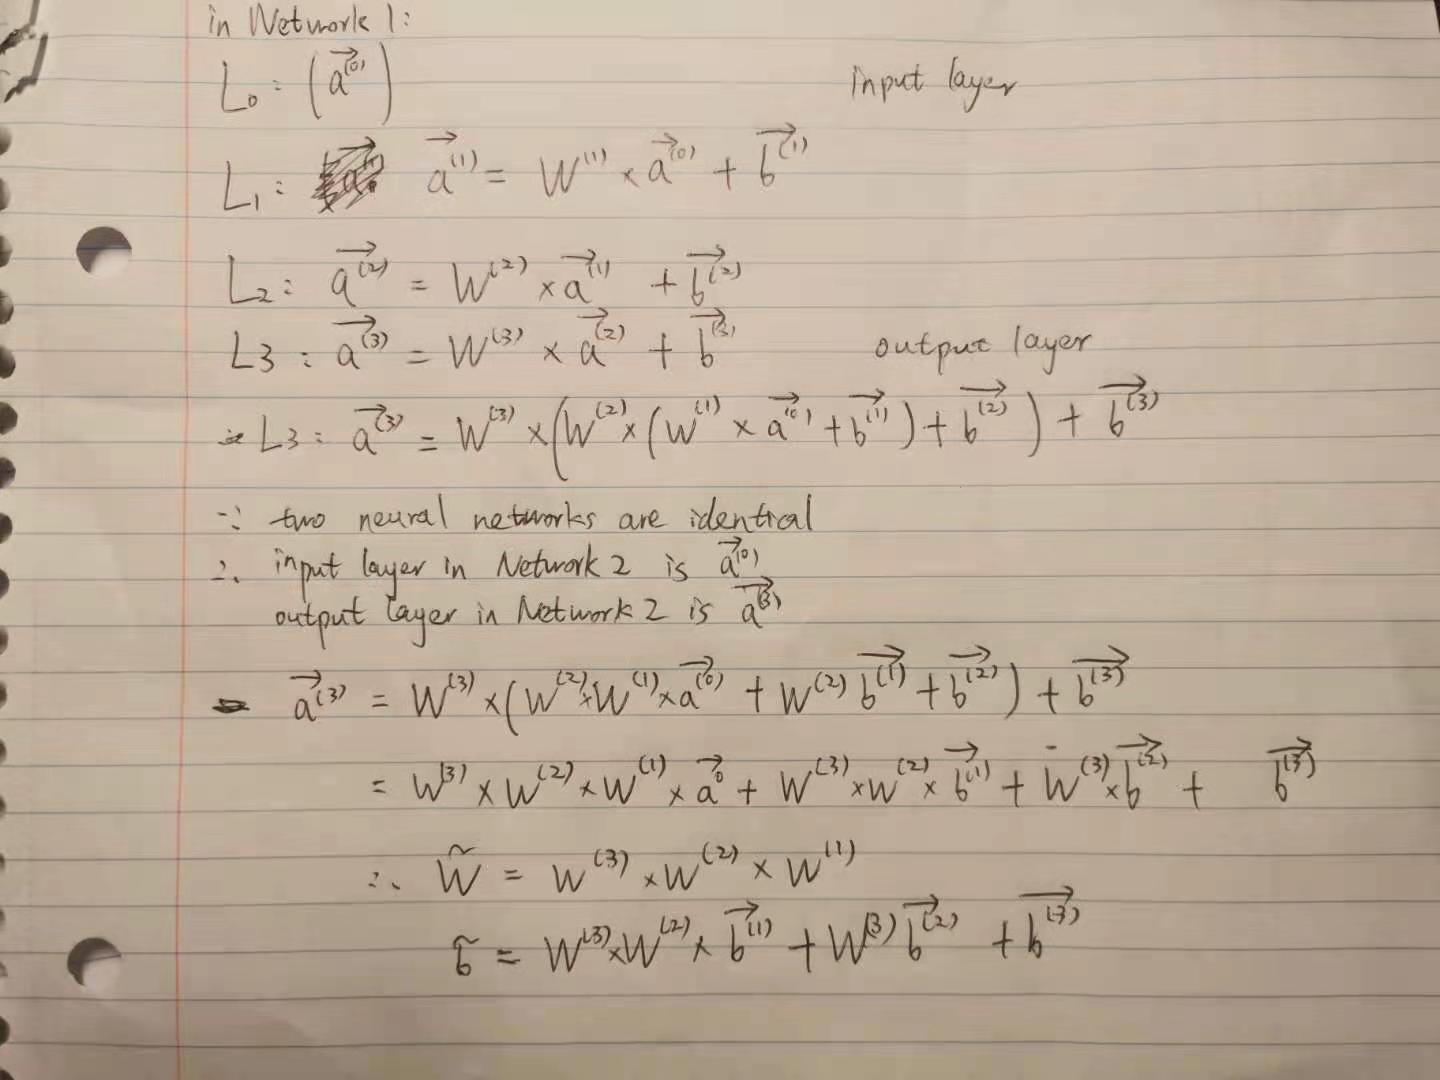 in Network 1:
L₀: (a⃗⁽⁰⁾) input layer
L₁: a⃗⁽¹⁾ = W⁽¹⁾ × a⃗⁽⁰⁾ + b⃗⁽¹⁾
L₂: a⃗⁽²⁾ = W⁽²⁾ × a⃗⁽¹⁾ + b⃗⁽²⁾
L3: a⃗⁽³⁾ = W⁽³⁾ × a⃗⁽²⁾ + b⃗⁽³⁾ output layer
L3: a⃗⁽³⁾ = W⁽³⁾ × (W⁽²⁾ × (W⁽¹⁾ × a⃗⁽⁰⁾ + b⃗⁽¹⁾) + b⃗⁽²⁾) + b⃗⁽³⁾
∵ two neural networks are identical
∴ input layer in Network 2 is a⃗⁽⁰⁾
output layer in Network 2 is a⃗⁽³⁾
a⃗⁽³⁾ = W⁽³⁾ × (W⁽²⁾ × W⁽¹⁾ × a⃗⁽⁰⁾ + W⁽²⁾ b⃗⁽¹⁾ + b⃗⁽²⁾) + b⃗⁽³⁾
= W⁽³⁾ × W⁽²⁾ × W⁽¹⁾ × a⃗⁰ + W⁽³⁾ × W⁽²⁾ × b⃗⁽¹⁾ + W⁽³⁾ × b⃗⁽²⁾ + b⃗⁽³⁾
∴ W̃ = W⁽³⁾ × W⁽²⁾ × W⁽¹⁾
b̃ = W⁽³⁾ × W⁽²⁾ × b⃗⁽¹⁾ + W⁽³⁾ b⃗⁽²⁾ + b⃗⁽³⁾